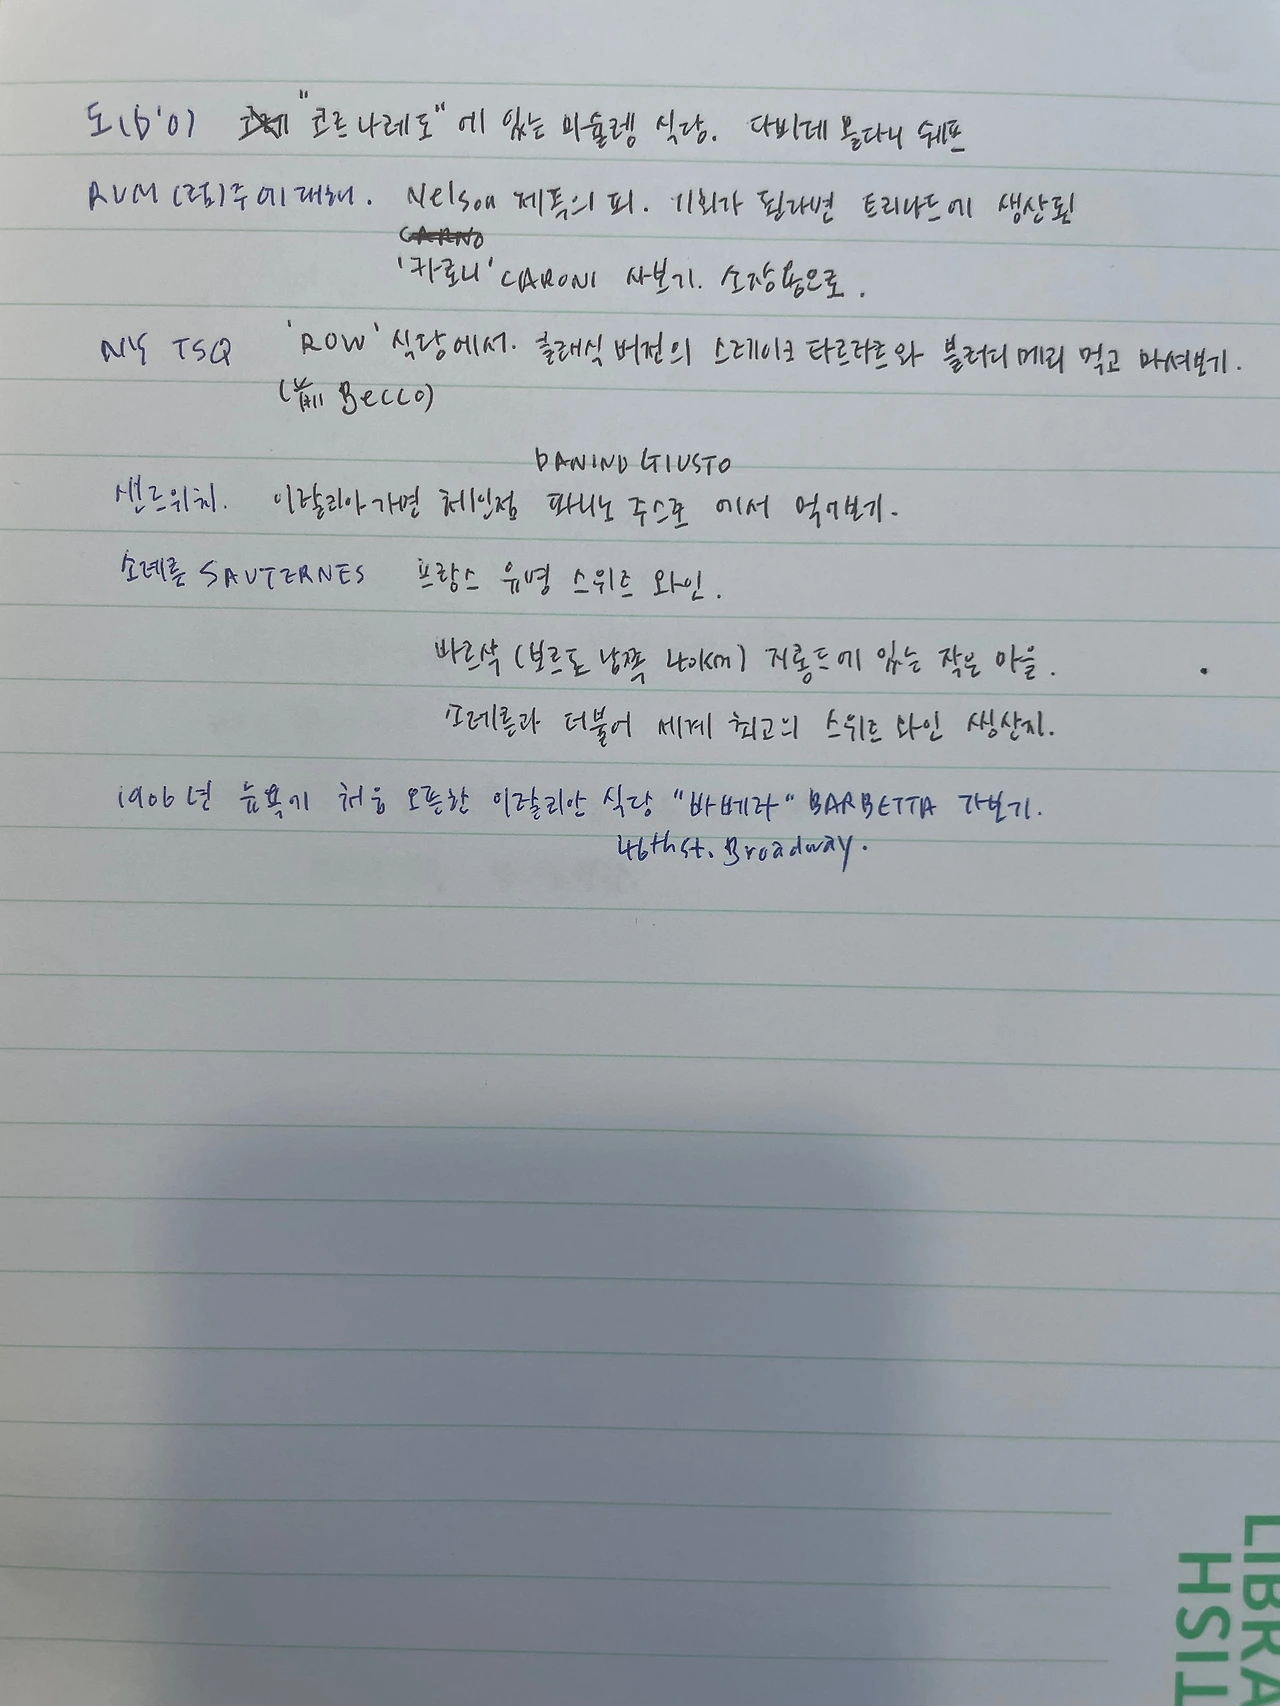 도(D'O) "코르나레도"에 있는 미슐랭 식당. 다비데 올다니 쉐프
RUM(럼)주에 대해. Nelson 제독의 피. 기회가 된다면 트리니다드에 생산된
CARNO
'카로니' CARONI 사보기. 소장용으로.
NY TSQ 'ROW' 식당에서. 클래식 버전의 스테이크 타르타르와 블러디메리 먹고 마셔보기.
( Becco)
PANINO GIUSTO
샌드위치. 이탈리아가면 체인점 파니노 주스토 에서 먹어보기.
소테른 SAUTERNES 프랑스 유명 스위트 와인.
바르삭 (보르도 남쪽 40km) 지롱드에 있는 작은 마을.
소테른과 더불어 세계 최고의 스위트 와인 생산지.
1906년 뉴욕에 처음 오픈한 이탈리안 식당 "바베타" BARBETTA 가보기.
46th st. Broadway.
LIBRA
TISH